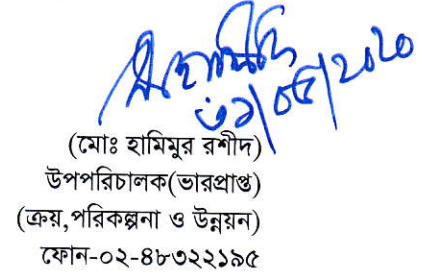 ৩১/০৫/২০২০
(মোঃ হামিমুর রশীদ)
উপপরিচালক(ভারপ্রাপ্ত)
(ক্রয়,পরিকল্পনা ও উন্নয়ন)
ফোন-০২-৪৮৩২২১৯৫